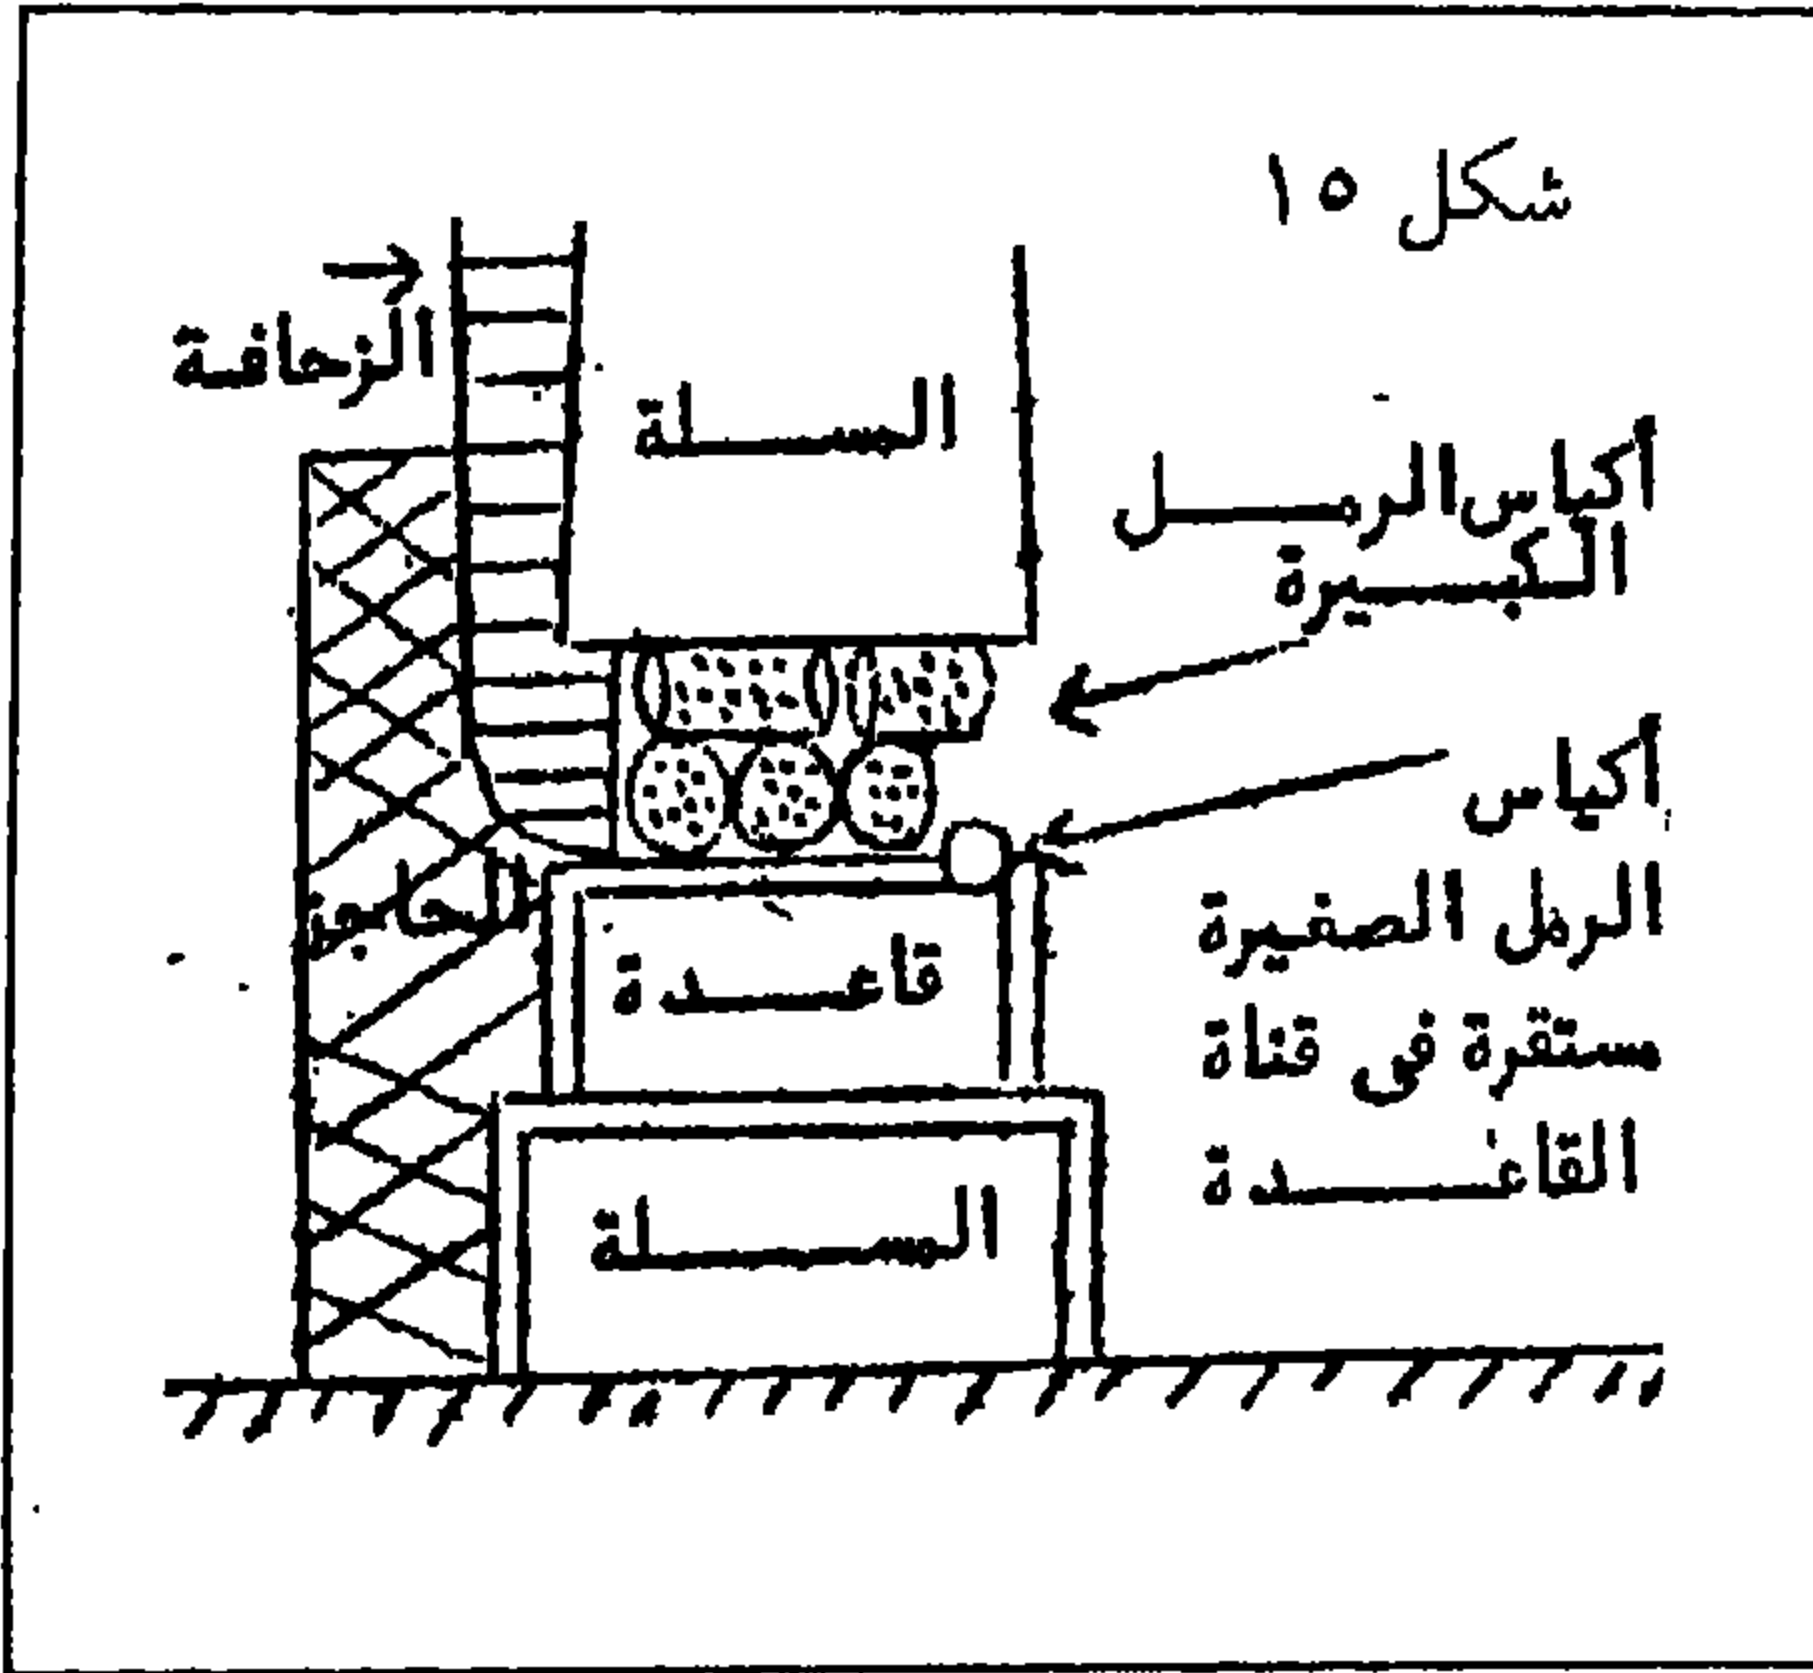 شكل ١٥
الزحافة
المسلة
أكياس الرمل
الكبيرة
أكياس
الرمل الصغيرة
مستقرة فى قناة
القاعدة
قاعدة
المسلة